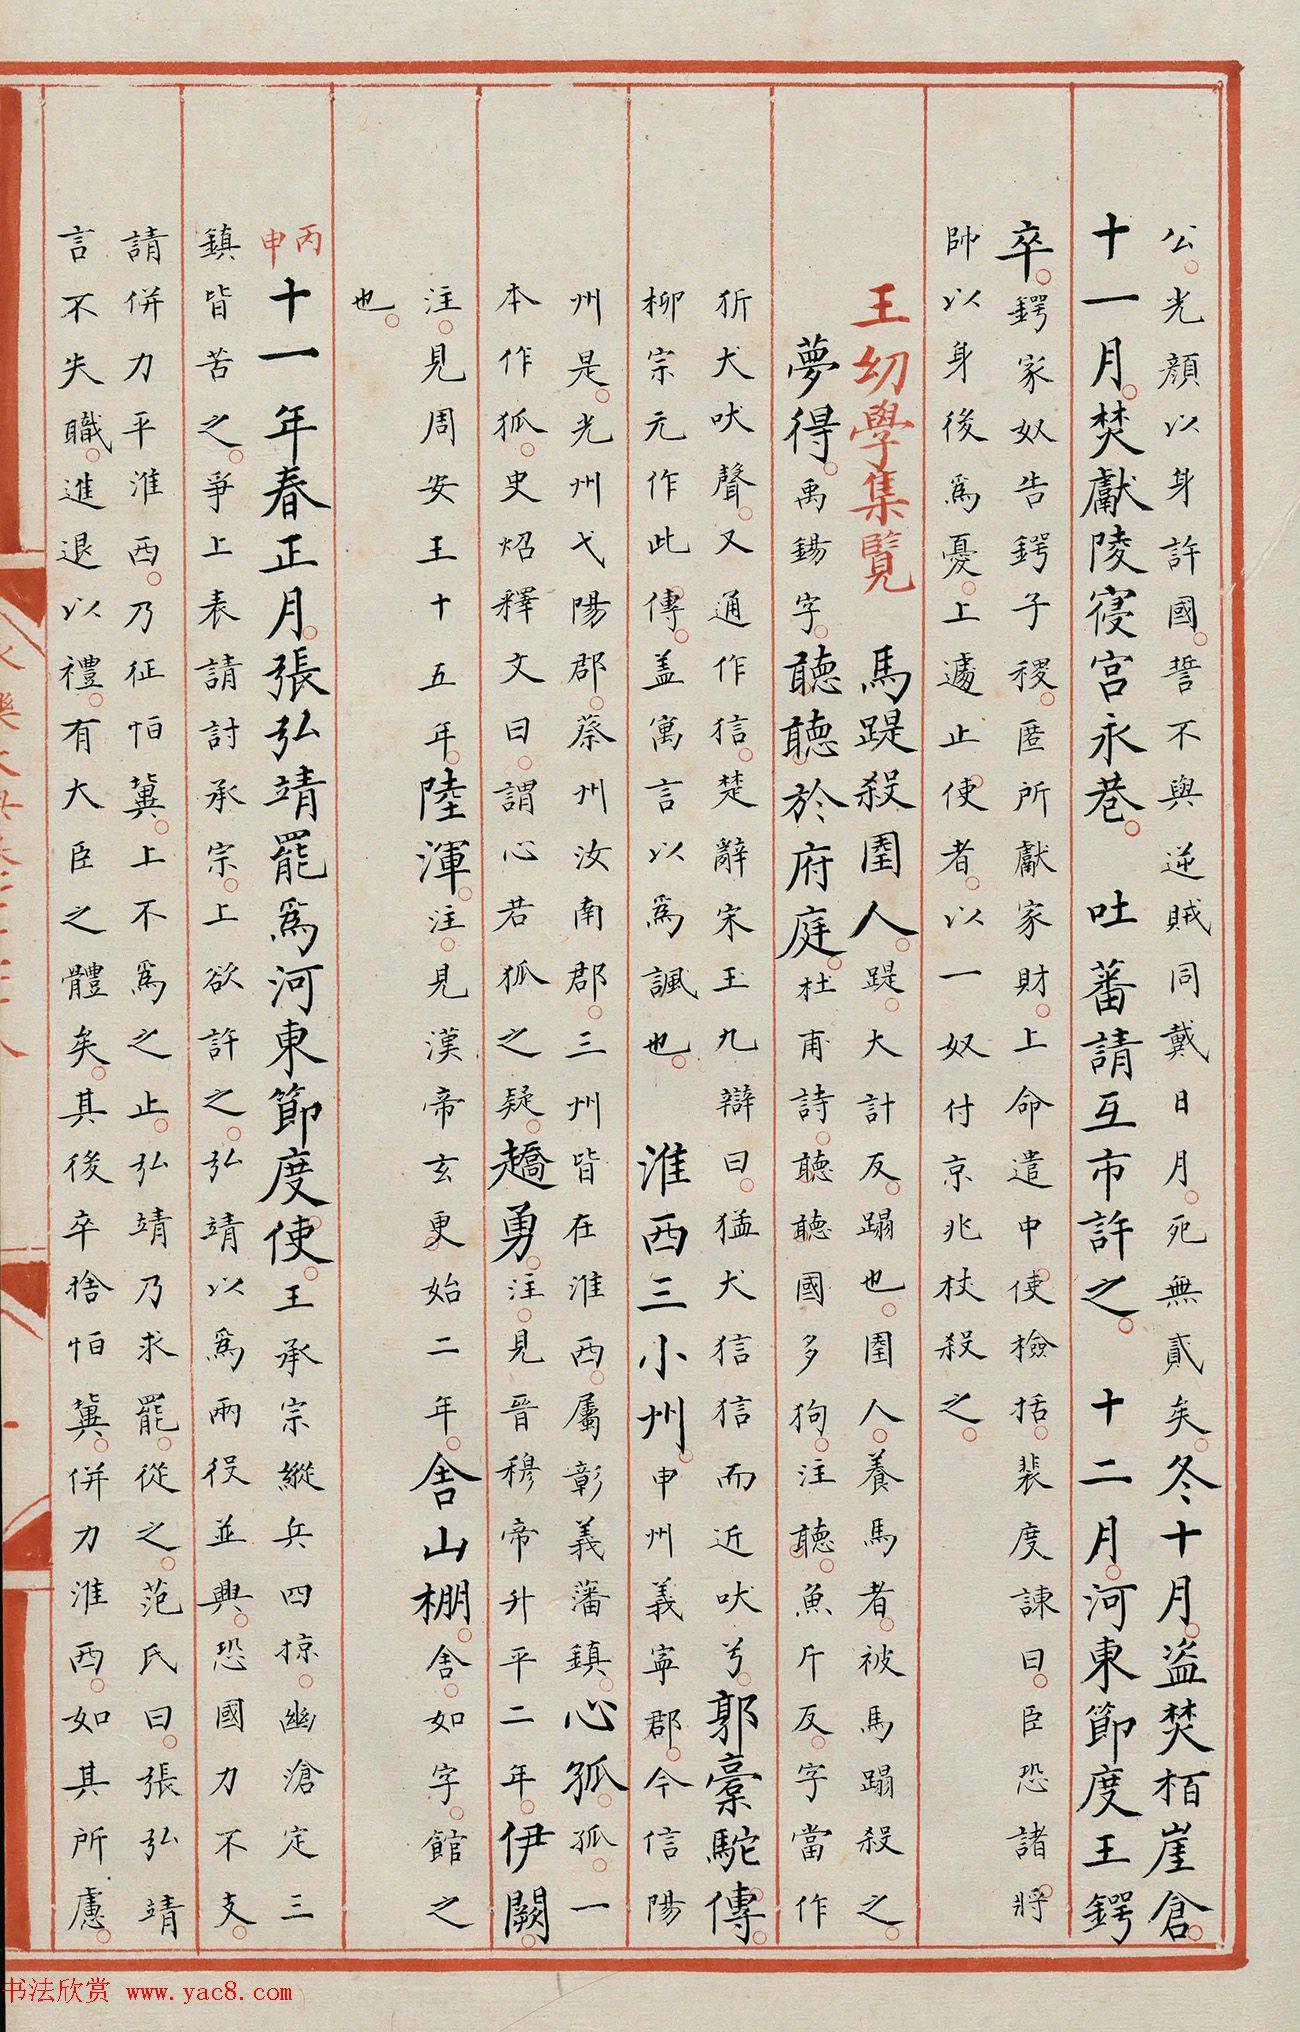 公光顔以身許國誓不與逆賊同戴日月死無貳矣冬十月盗焚栢崖倉
十一月焚獻陵寢宮永巷 吐蕃請互市許之 十二月河東節度王鍔
卒鍔家奴告鍔子稷匿所獻家財上命遣中使檢括裴度諫曰臣恐諸將
帥以身後爲憂上遽止使者以一奴付京兆杖殺之
王幼學集覽 馬踶殺圉人踶大計反蹋也圉人養馬者被馬蹋殺之
夢得禹錫字聽聽於府庭杜甫詩聽聽國多狗注聽魚斤反字當作
犾犬吠聲又通作㹞楚辭宋玉九辯曰猛犬㹞㹞而近吠兮郭橐駝傳
柳宗元作此傳盖寓言以爲諷也 淮西三小州申州義寧郡今信陽
州是光州弋陽郡蔡州汝南郡三州皆在淮西屬彰義藩鎮心狐狐一
本作狐史炤釋文曰謂心若狐之疑趫勇注見晉穆帝升平二年伊闕
注見周安王十五年陸渾注見漢帝玄更始二年舍山棚舍如字館之
也
丙申十一年春正月張弘靖罷爲河東節度使王承宗縱兵四掠幽滄定三
鎮皆苦之爭上表請討承宗上欲許之弘靖以爲兩役並興恐國力不支
請併力平淮西乃征恒冀上不爲之止弘靖乃求罷從之范氏曰張弘靖
言不失職進退以禮有大臣之體矣其後卒捨恒冀併力淮西如其所慮
书法欣赏 www.yac8.com